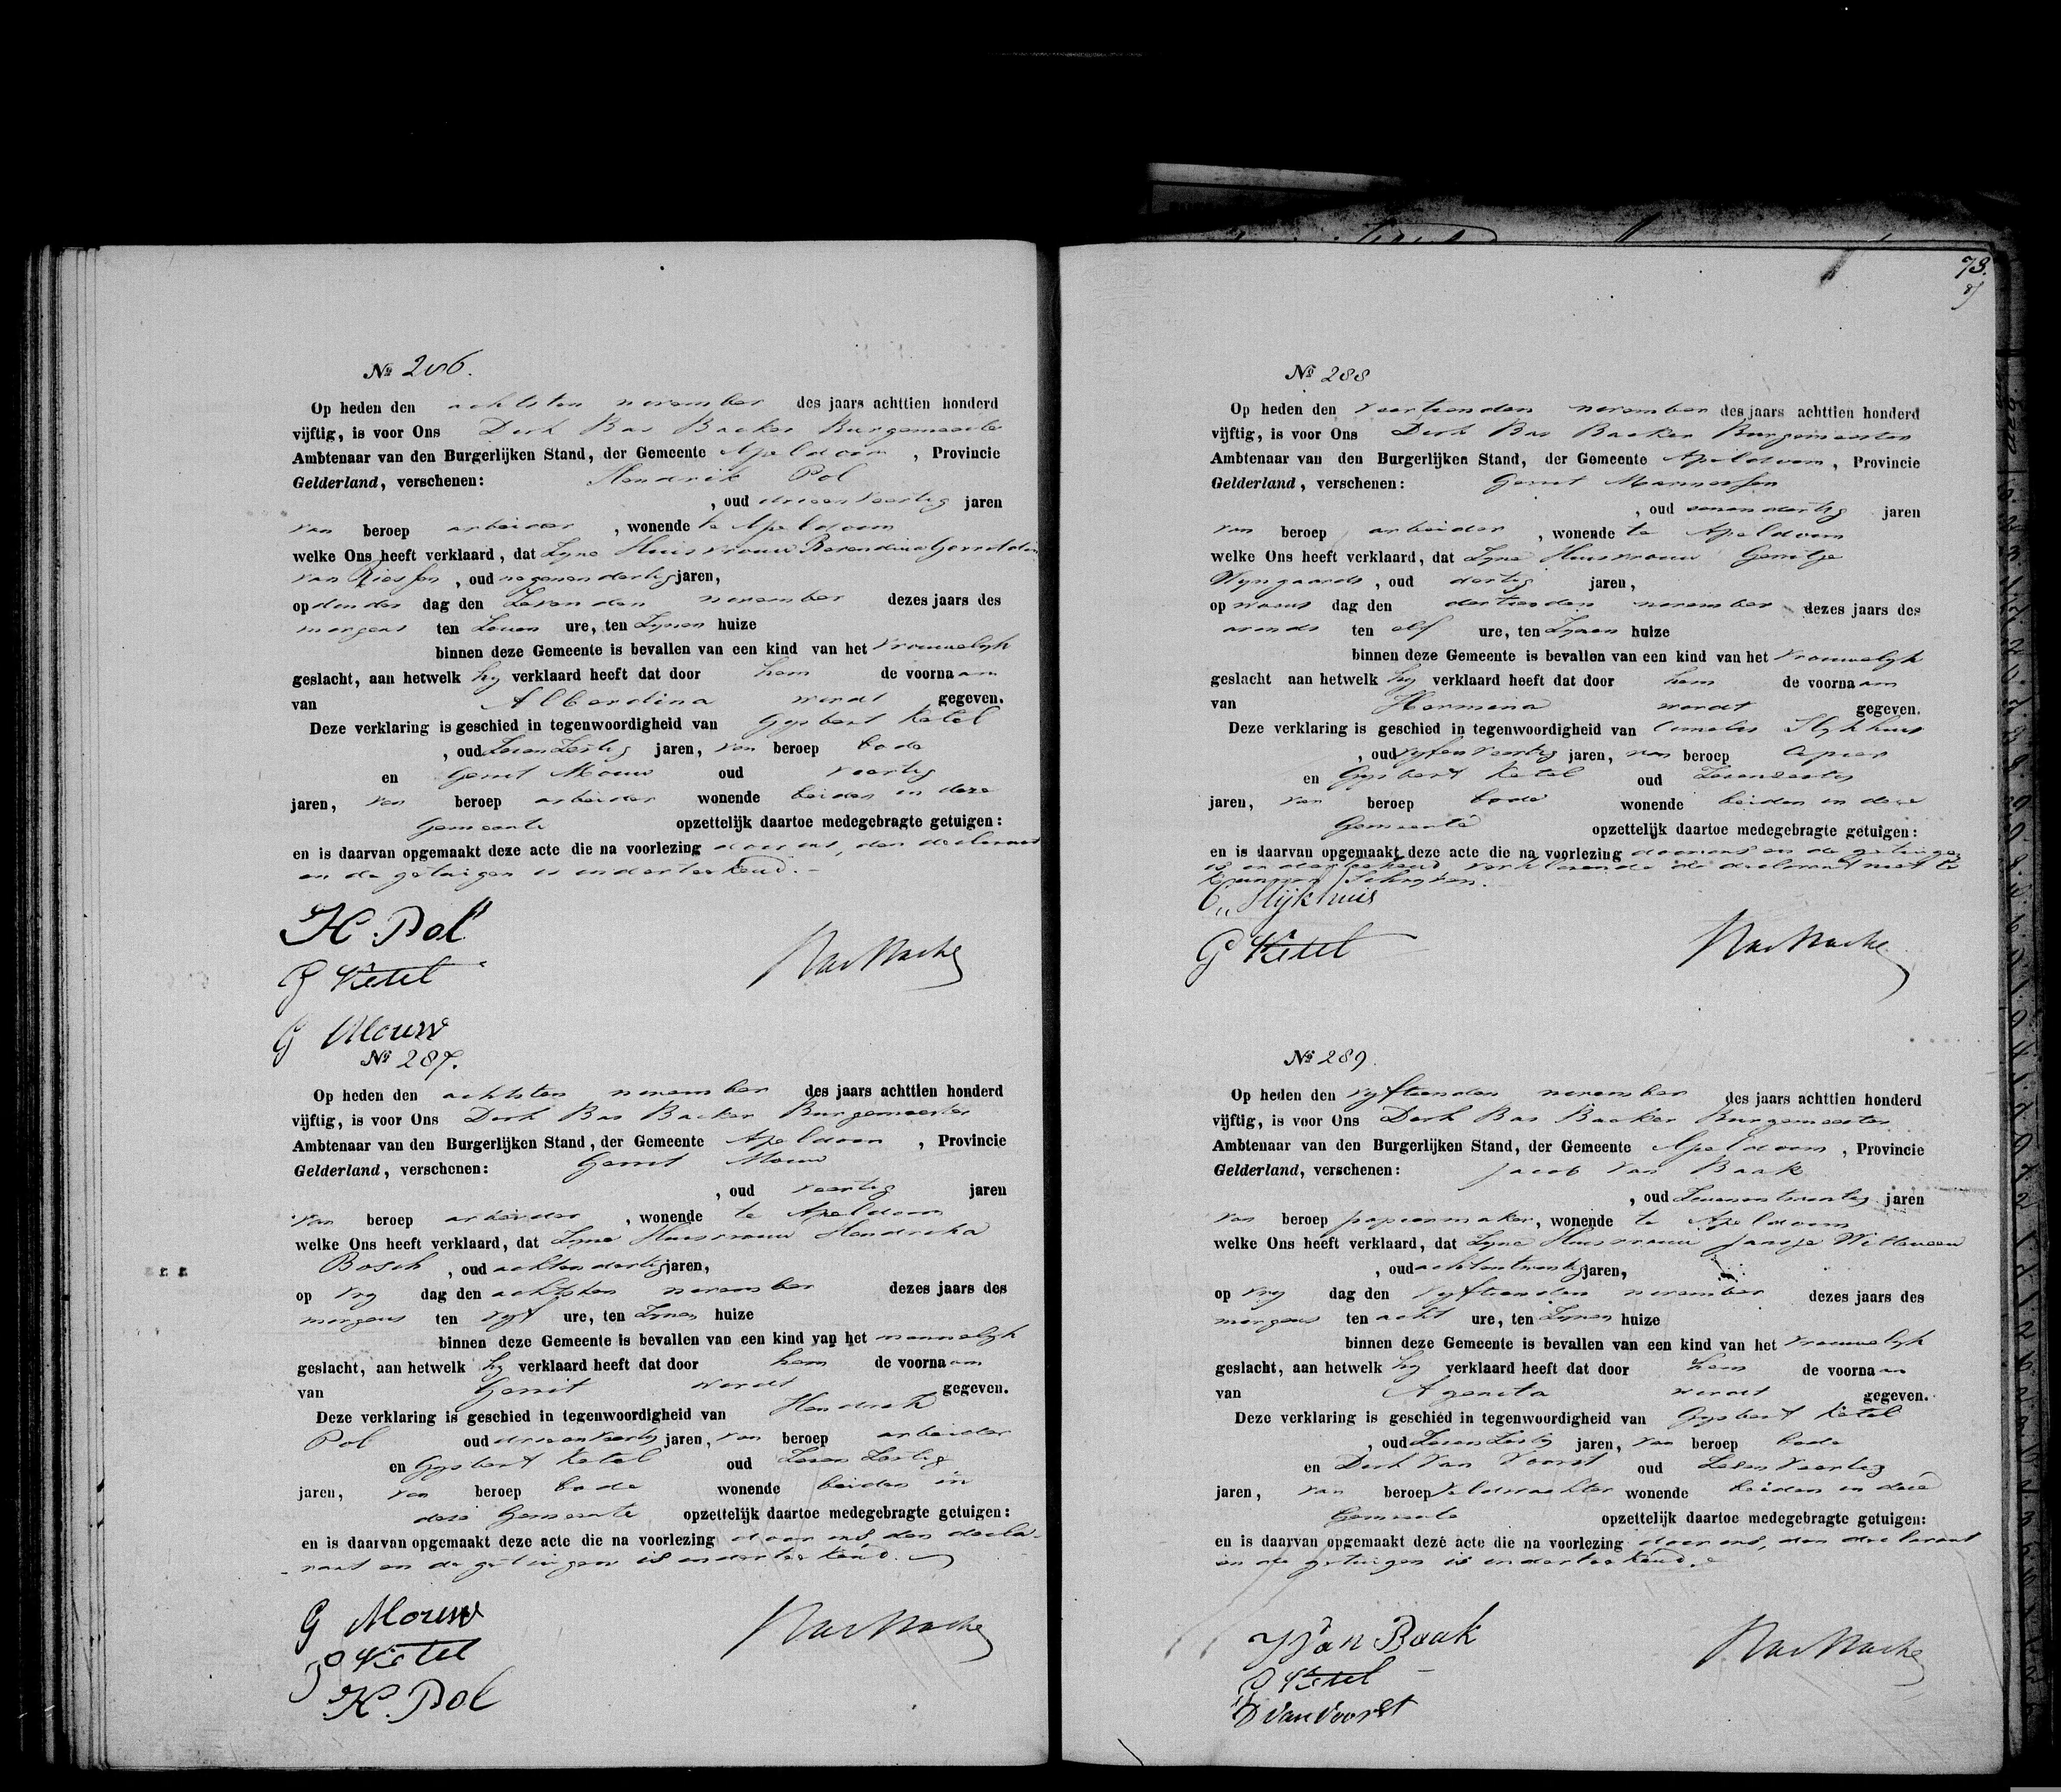 Nº 286.
Op heden den achtsten november des jaars achttien honderd
vijftig, is voor Ons Derk Bas Backer Burgemeester
Ambtenaar van den Burgerlijken Stand, der Gemeente Apeldoorn , Provincie
Gelderland, verschenen: Hendrik Pol
, oud drieenveertig jaren
van beroep arbeider , wonende te Apeldoorn
welke Ons heeft verklaard, dat Zyne Huisvrouw Berendina
van , oud negenendertig jaren,
op donder dag den Zevenden november dezes jaars des
morgens ten Zeven ure, ten Zynen huize
binnen deze Gemeente is bevallen van een kind van het vrouwelyk
geslacht, aan hetwelk hy verklaard heeft dat door hem de voornaam
van Alberdina wordt gegeven.
Deze verklaring is geschied in tegenwoordigheid van Gysbert Ketel
, oud Zevenzestig jaren, van beroep bode
en Gerrit Mouw oud veertig
jaren, van beroep arbeider wonende beiden in deze
Gemeente opzettelijk daartoe medegebragte getuigen:
en is daarvan opgemaakt deze acte die na voorlezing door ons, den declarant
en de getuigen is onderteekend.
H. Pol
G Ketel
Bas Backer
G Mouw
Nº 287.
Op heden den achtsten november des jaars achttien honderd
vijftig, is voor Ons Derk Bas Backer Burgemeester
Ambtenaar van den Burgerlijken Stand, der Gemeente Apeldoorn , Provincie
Gelderland, verschenen: Gerrit Mouw
, oud veertig jaren
van beroep arbeider , wonende te Apeldoorn
welke Ons heeft verklaard, dat Zyne Huisvrouw Hendrika
Bosch , oud achtendertig jaren,
op Vry dag den achtsten november dezes jaars des
morgens ten vyf ure, ten Zynen huize
binnen deze Gemeente is bevallen van een kind van het mannelyk
geslacht, aan hetwelk hy verklaard heeft dat door hem de voornaam
van Gerrit wordt gegeven.
Deze verklaring is geschied in tegenwoordigheid van Hendrik
Pol oud drieenveertig jaren, van beroep arbeider
en Gysbert Ketel oud Zevenzestig
jaren, van beroep bode wonende beiden in
deze Gemeente opzettelijk daartoe medegebragte getuigen:
en is daarvan opgemaakt deze acte die na voorlezing door ons, den decla-
rant en de getuigen is onderteekend.
G Mouw
G Ketel
Bas Backer
H. Pol
73.
Nº 288
Op heden den veertienden november des jaars achttien honderd
vijftig, is voor Ons Derk Bas Backer Burgemeester
Ambtenaar van den Burgerlijken Stand, der Gemeente Apeldoorn , Provincie
Gelderland, verschenen: Gerrit
, oud eenendertig jaren
van beroep arbeider , wonende te Apeldoorn
welke Ons heeft verklaard, dat Zyne Huisvrouw Gerritje
Wyngaards , oud dertig jaren,
op woens dag den dertienden november dezes jaars des
avonds ten elf ure, ten Zynen huize
binnen deze Gemeente is bevallen van een kind van het vrouwelyk
geslacht aan hetwelk hy verklaard heeft dat door hem de voornaam
van Hermina wordt gegeven.
Deze verklaring is geschied in tegenwoordigheid van Cornelis Slykhuis
, oud vyfenveertig jaren, van beroep
en Gysbert Ketel oud Zevenzestig
jaren, van beroep bode wonende beiden in deze
Gemeente opzettelijk daartoe medegebragte getuigen:
en is daarvan opgemaakt deze acte die na voorlezing door ons en de getuigen
is onderteekend verklarende de declarant niet te
kunnen Schryven.
C. Slijkhuis
G Ketel
Bas Backer
Nº 289.
Op heden den vyftienden november des jaars achttien honderd
vijftig, is voor Ons Derk Bas Backer Burgemeester
Ambtenaar van den Burgerlijken Stand, der Gemeente Apeldoorn , Provincie
Gelderland, verschenen: Jacob van Baak
, oud Zevenentwintig jaren
van beroep papiermaker, wonende te Apeldoorn
welke Ons heeft verklaard, dat Zyne Huisvrouw Jansje Witteveen
, oud achtentwintig jaren,
op Vry dag den vyftienden november dezes jaars des
morgens ten acht ure, ten Zynen huize
binnen deze Gemeente is bevallen van een kind van het vrouwelyk
geslacht, aan hetwelk hy verklaard heeft dat door hem de voornaam
van Agenita wordt gegeven.
Deze verklaring is geschied in tegenwoordigheid van Gysbert Ketel
, oud Zevenzestig jaren, van beroep bode
en Derk van Voorst oud Zevenveertig
jaren, van beroep veldwachter wonende beiden in deze
Gemeente opzettelijk daartoe medegebragte getuigen:
en is daarvan opgemaakt deze acte die na voorlezing door ons, den declarant
en de getuigen is onderteekend.
J Van Baak
G Ketel
Bas Backer
D van Voorst